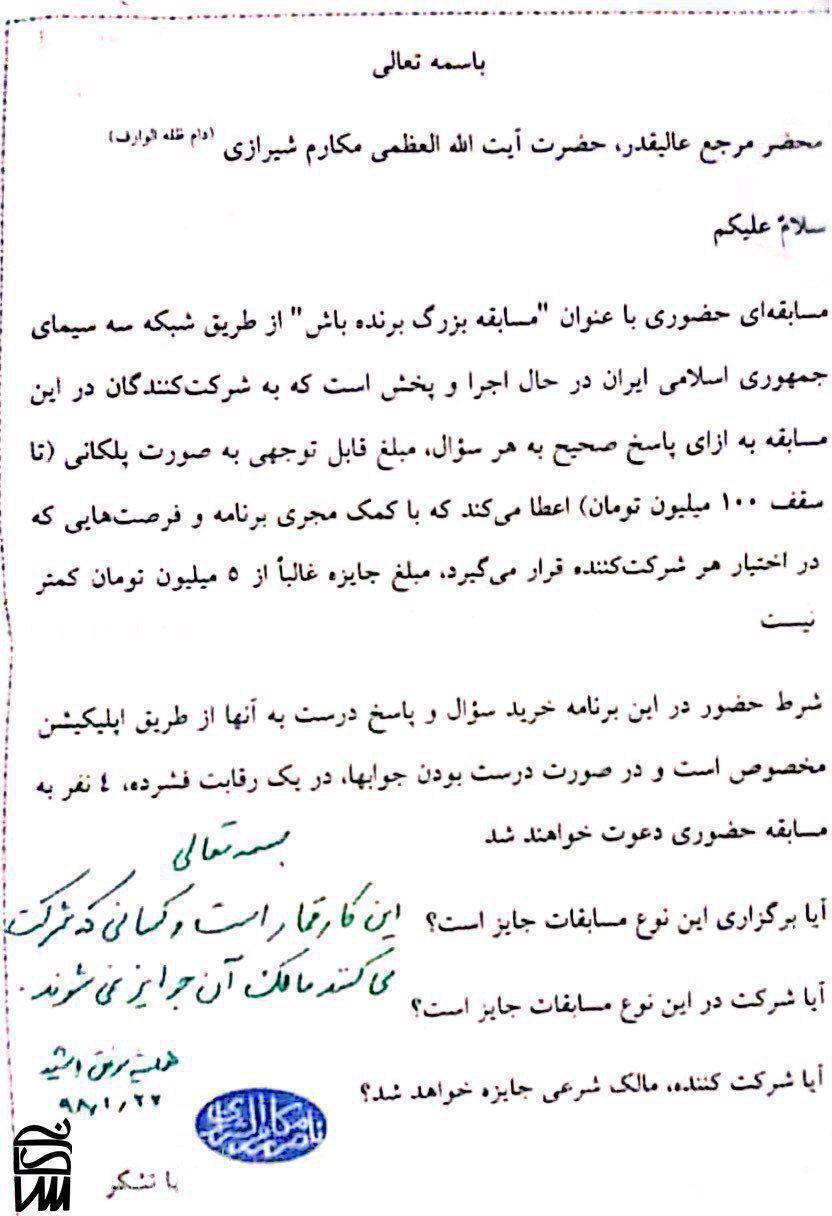 باسمه تعالی
محضر مرجع عالیقدر، حضرت آیت الله العظمی مکارم شیرازی (دام ظله الوارف)
سلامٌ علیکم
مسابقه‌ای حضوری با عنوان "مسابقه بزرگ برنده باش" از طریق شبکه سه سیمای
جمهوری اسلامی ایران در حال اجرا و پخش است که به شرکت‌کنندگان در این
مسابقه به ازای پاسخ صحیح به هر سؤال، مبلغ قابل توجهی به صورت پلکانی (تا
سقف ۱۰۰ میلیون تومان) اعطا می‌کند که با کمک مجری برنامه و فرصت‌هایی که
در اختیار هر شرکت‌کننده قرار می‌گیرد، مبلغ جایزه غالباً از ۵ میلیون تومان کمتر
نیست
شرط حضور در این برنامه خرید سؤال و پاسخ درست به آنها از طریق اپلیکیشن
مخصوص است و در صورت درست بودن جوابها، در یک رقابت فشرده، ٤ نفر به
مسابقه حضوری دعوت خواهند شد
بسمه تعالی
آیا برگزاری این نوع مسابقات جایز است؟
این کار قمار است و کسانی که شرکت
می کنند مالک آن جوایز نمی شوند.
آیا شرکت در این نوع مسابقات جایز است؟
آیا شرکت کننده، مالک شرعی جایزه خواهد شد؟
همیشه موفق باشید
۹۸/۱/۲۲
ناصر مکارم شیرازی
با تشکر